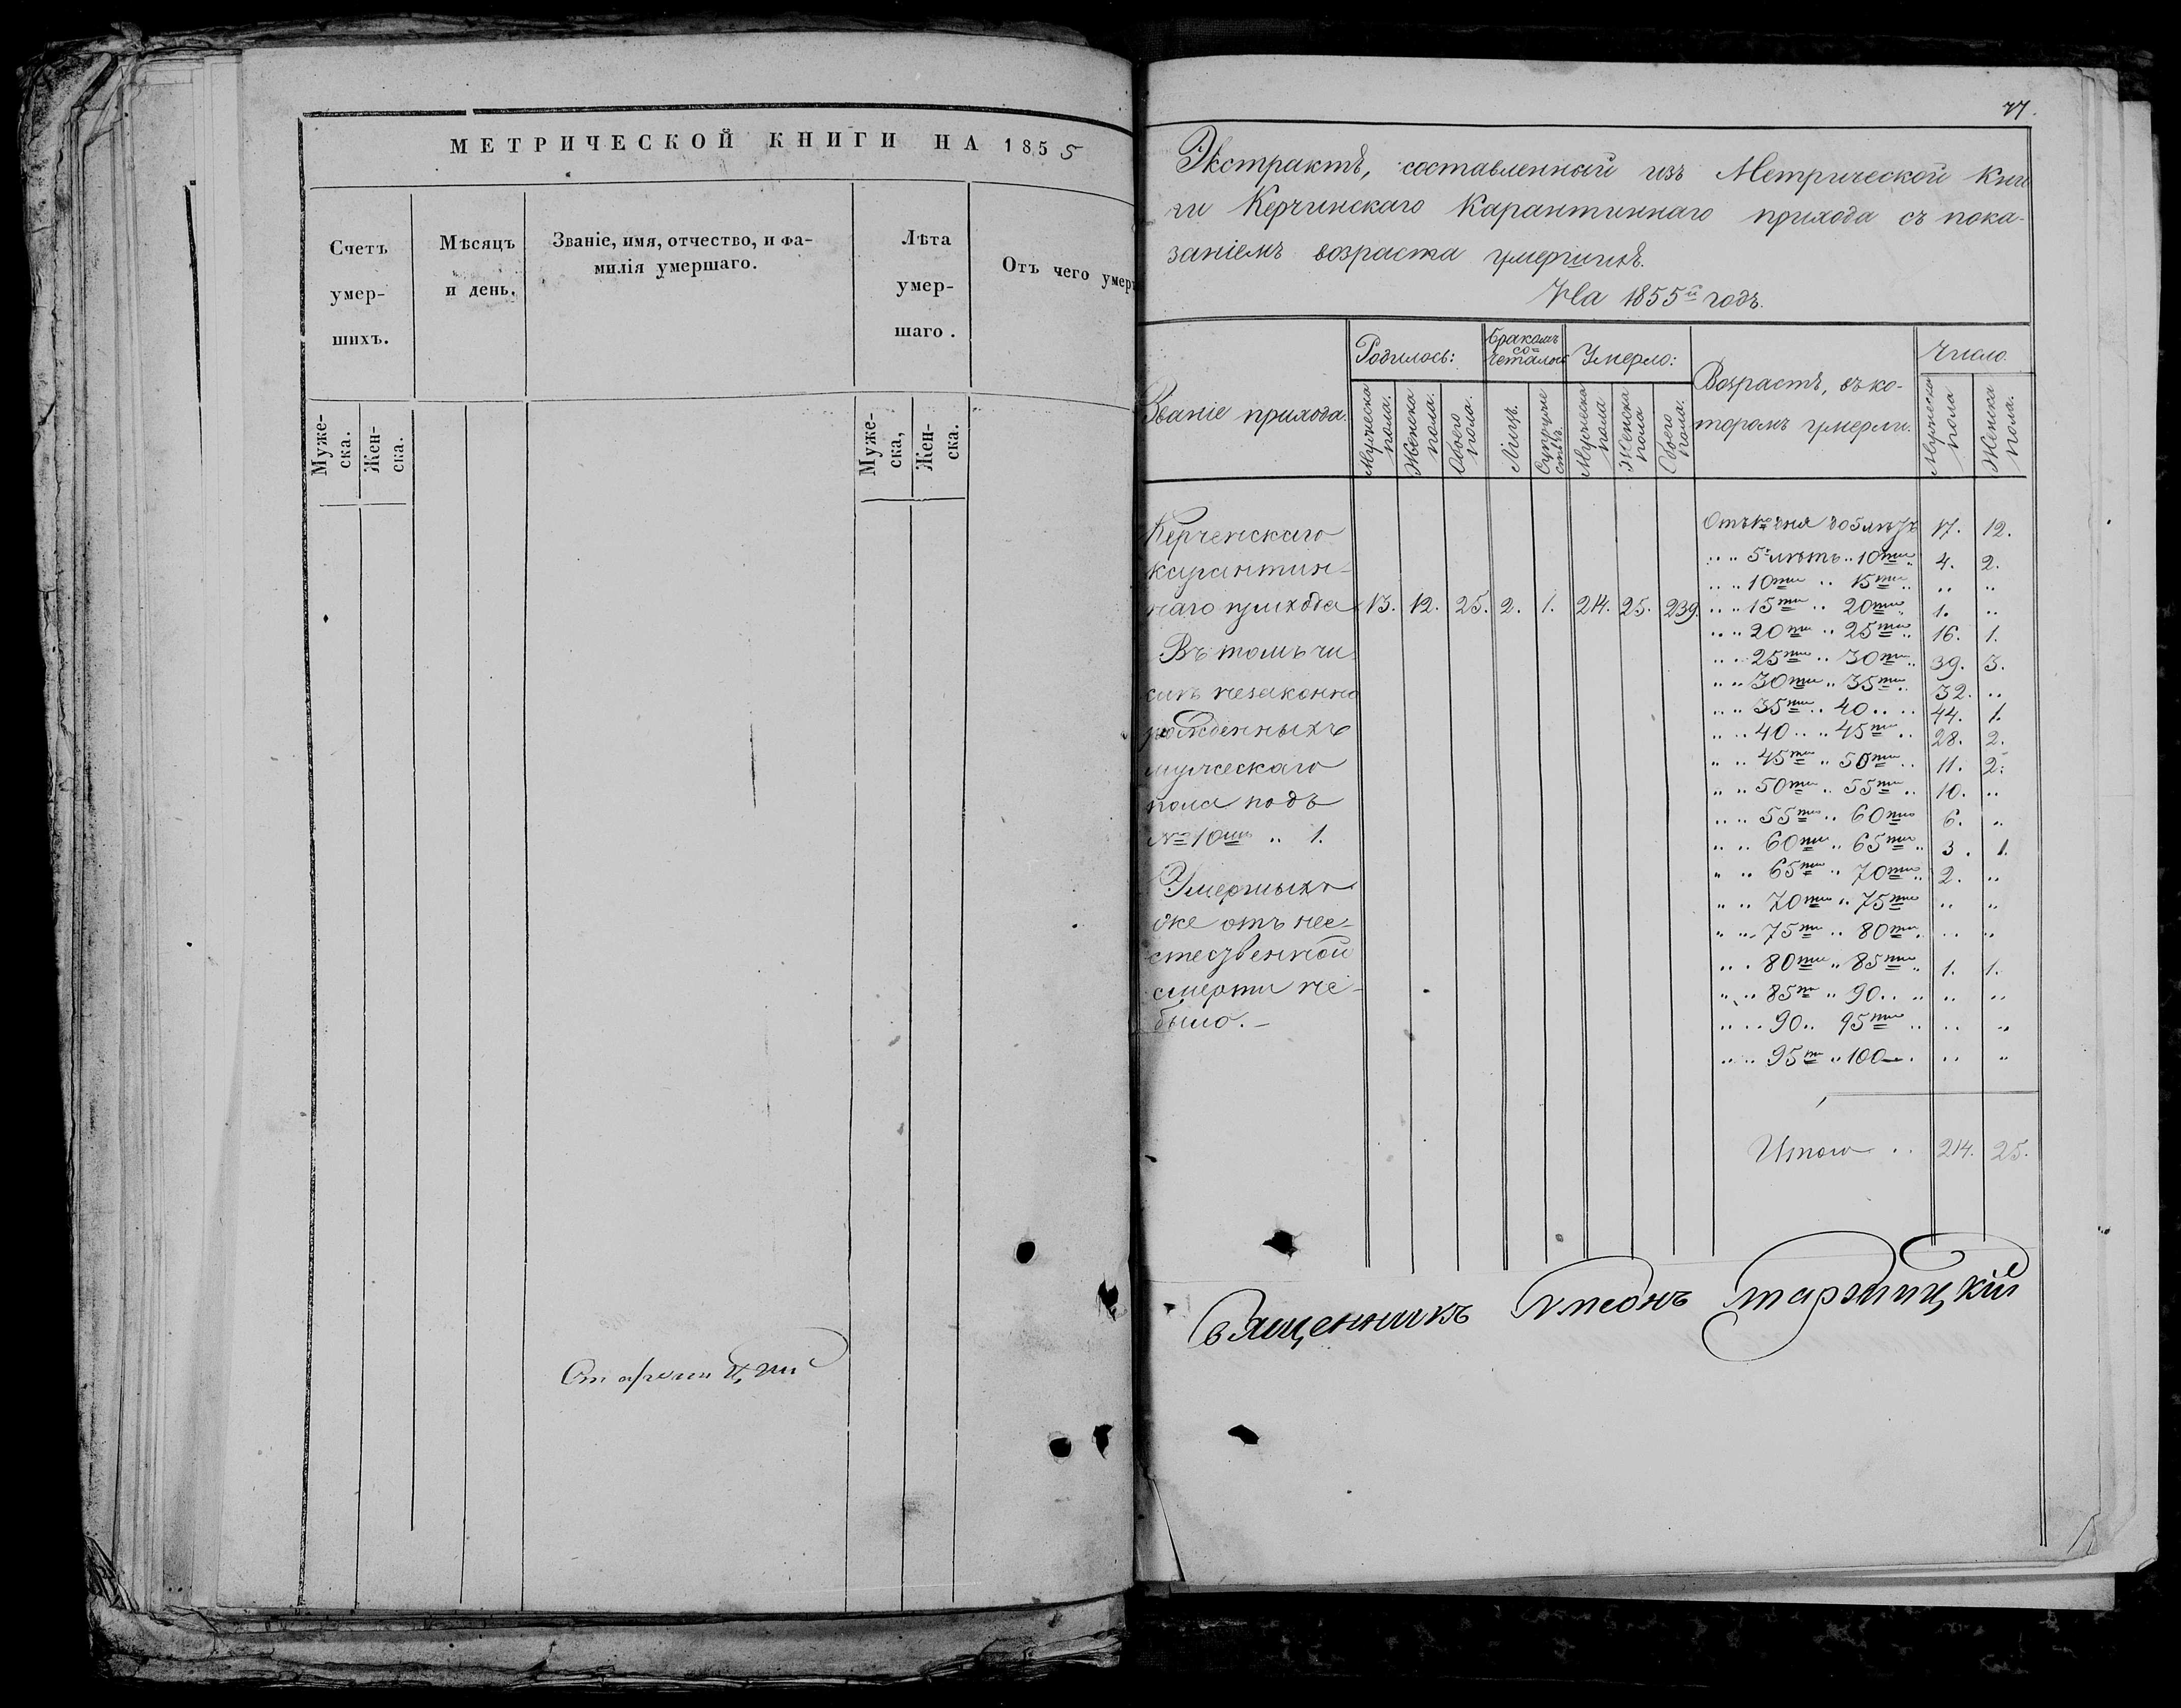 МЕТРИЧЕСКОЙ КНИГИ НА 1855
Счетъ умер-шихъ.
Мѣсяцъ и день.
Званіе, имя, отчество, и фа-
милія умершаго.
Лѣта умер-шаго.
Отъ чего умер
Муже-ска.
Жен-ска.
Муже-ска,
Жен-ска.
77.
Экстрактъ, составленный изъ Метрической Кни
ги Керчинскаго Карантиннаго прихода съ пока-
заніемъ возраста умершихъ.
На 1855й годъ.
Званіе прихода.
Родилось:
Бракомъ со=четалось
Умерло:
Возрастъ, въ ко-
торомъ умерли.
Число.
Мужеска пола.
Женска пола.
Обоего пола.
Лицъ.
Супружествъ.
Мужеска пола
Женска пола
Обоего пола.
Мужеска пола
Женска пола.
Керченскаго
карантин-
наго прихода 13. 12. 25. 2. 1. 214. 25. 239.
Въ томъ чи
слѣ незаконно
рожденныхъ
мужескаго
пола подъ
№ 10мъ .. 1.
Умершихъ
же отъ нее-
стественной
смерти не-
было. -
до 5 лѣтъ 17. 12.
.. .. 5 лѣтъ .. 10ти .. 4. 2.
.. .. 10ти .. 15ти .. .. ..
.. .. 15ти .. 20ти .. 1. ..
.. .. 20ти .. 25ти .. 16. 1.
.. .. 25ти .. 30ти .. 39. 3.
.. .. 30ти .. 35ти .. 32. ..
.. .. 35ти .. 40 .. .. 44. 1.
.. .. 40 .. .. 45ти .. 28. 2.
.. .. 45ти .. 50ти .. 11. 2.
.. .. 50ти .. 55ти .. 10. ..
.. .. 55ти .. 60ти 6. ..
.. .. 60ти .. 65ти .. 3. 1.
.. .. 65ти .. 70ти .. 2. ..
.. .. 70ти .. 75ти .. ..
.. .. 75ти .. 80ти .. .. ..
.. .. 80ти .. 85ти .. 1. 1.
.. .. 85ти .. 90 .. .. .. ..
.. .. 90 .. 95ти .. .. ..
.. .. 95ти .. 100 .. .. ..
Итого .. 214. 25.
Священникъ